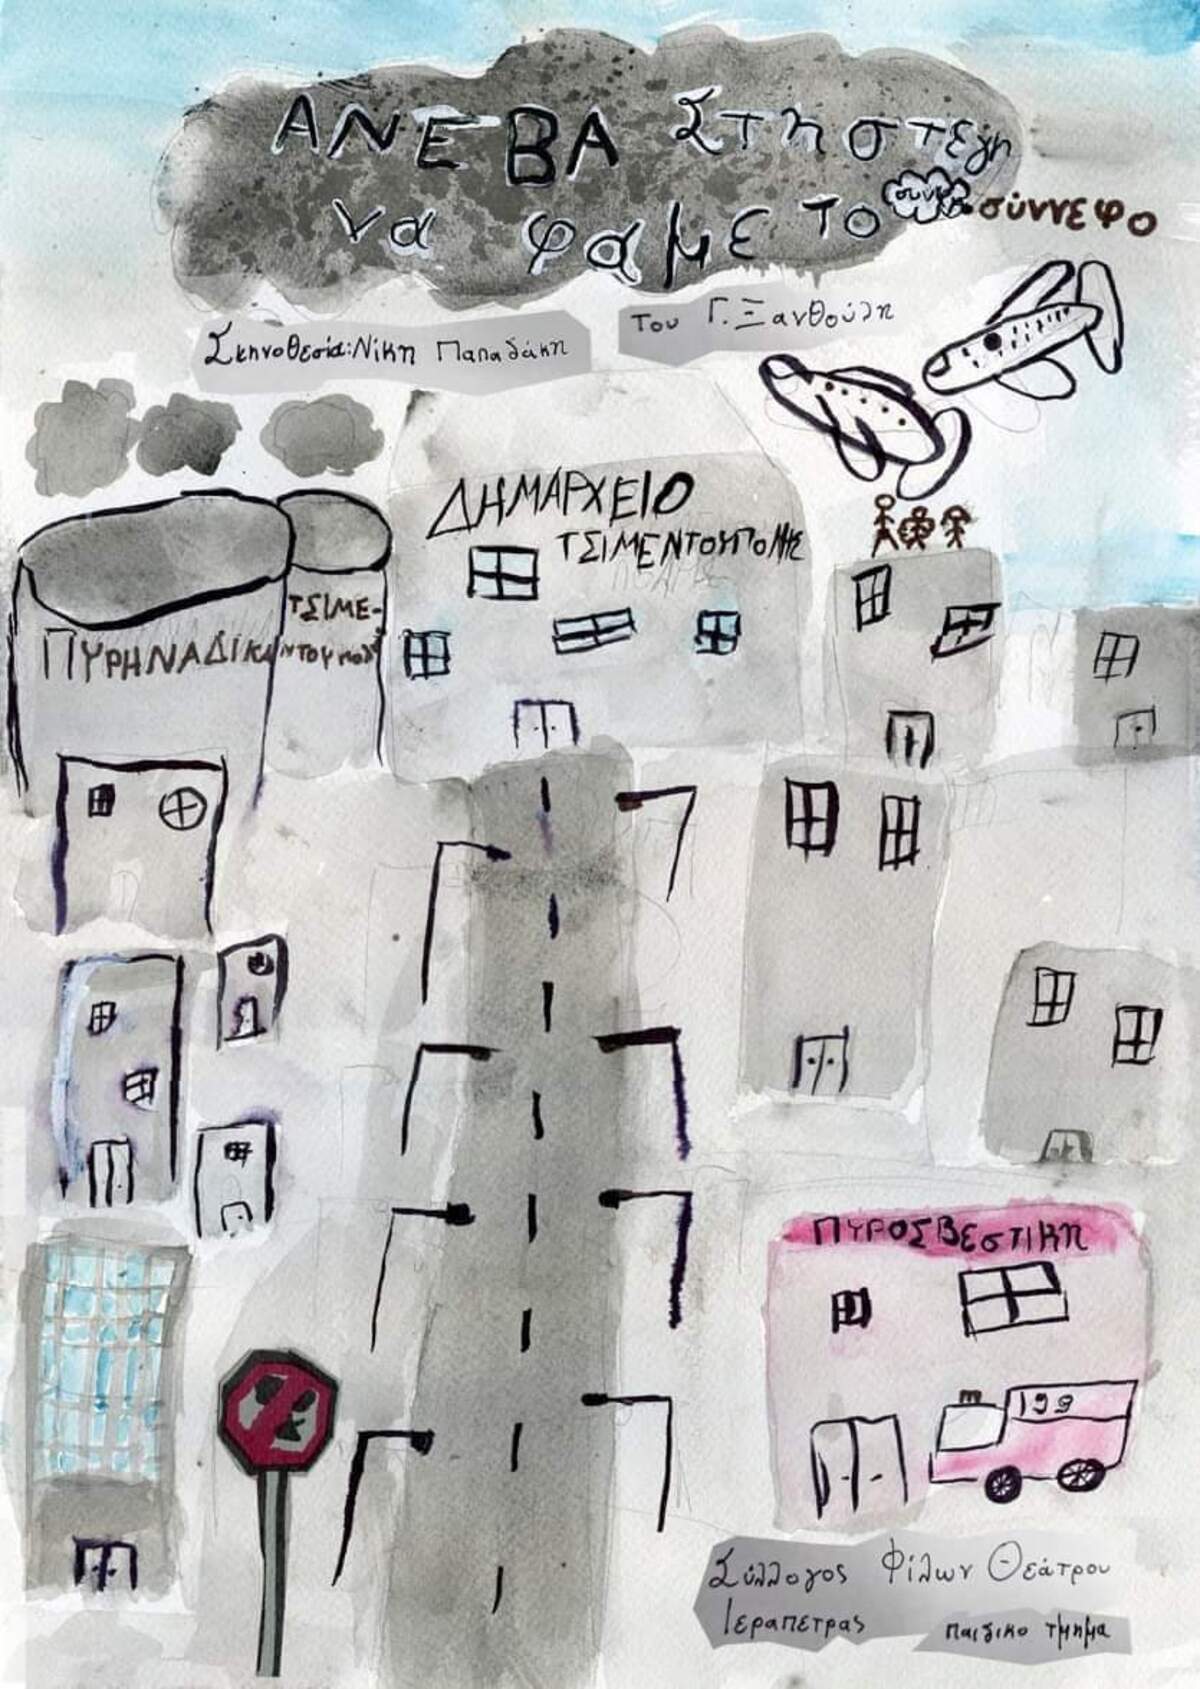 ΑΝΕΒΑ Στη στέγη
να φαμε το σύννεφο
Του Γ. Ξανθούλη
Σκηνοθεσία: Νίκη Παπαδάκη
ΔΗΜΑΡΧΕΙΟ
ΤΣΙΜΕΝΤΟΥΠΟΛΗΣ
ΠΥΡΗΝΑΔΙΚΑ
ΤΣΙΜΕ-
ΝΤΟΥΠΟΛΗ
ΠΥΡΟΣΒΕΣΤΙΚΗ
199
Σύλλογος Φίλων Θεάτρου
Ιεραπετρας παιδικο τμημα